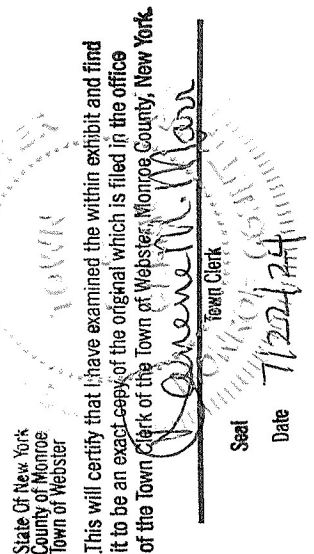 State Of New York
County of Monroe
Town of Webster
This will certify that I have examined the within exhibit and find
it to be an exact copy of the original which is filed in the office
of the Town Clerk of the Town of Webster, Monroe County, New York.
Town Clerk
Seal
Date 7/22/24